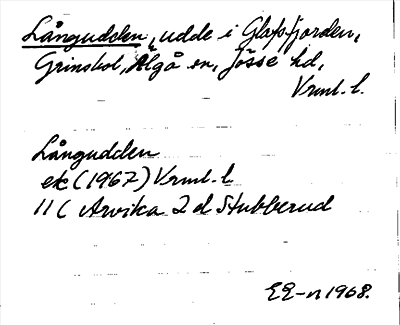 Långudden, udde i Glafsfjorden,
Grinsbol, Älgå sn, Jösse hd,
Vrml. l.
Långudden
ek (1967) Vrml. l
11 C Arvika 2 d Stubberud
EE-n 1968.